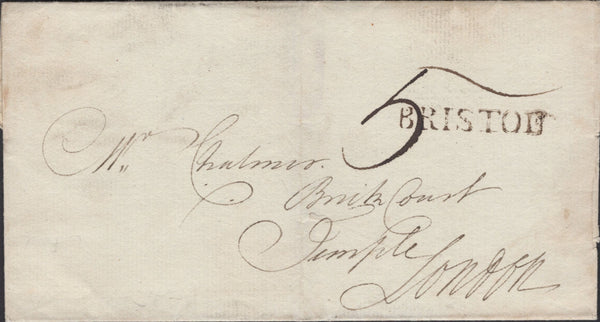 5
BRISTOL
Mr. Chalmer.
Brick Court
Temple
London